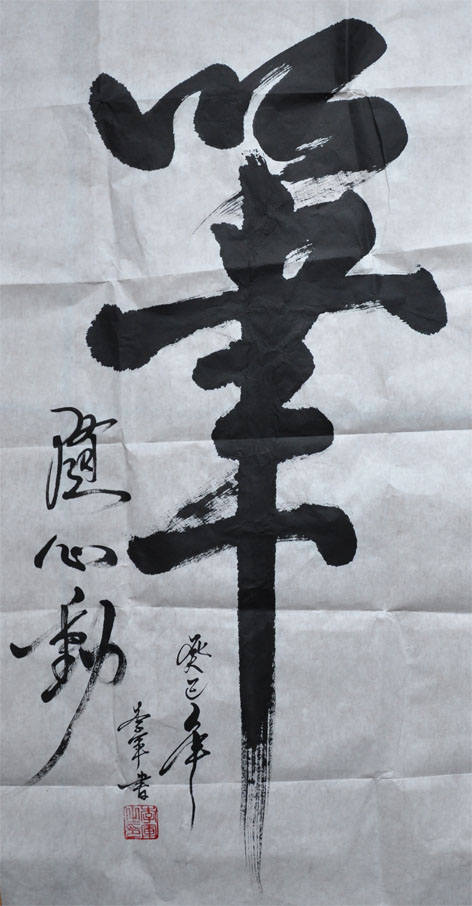 筆
隨心動
癸巳年
李軍書